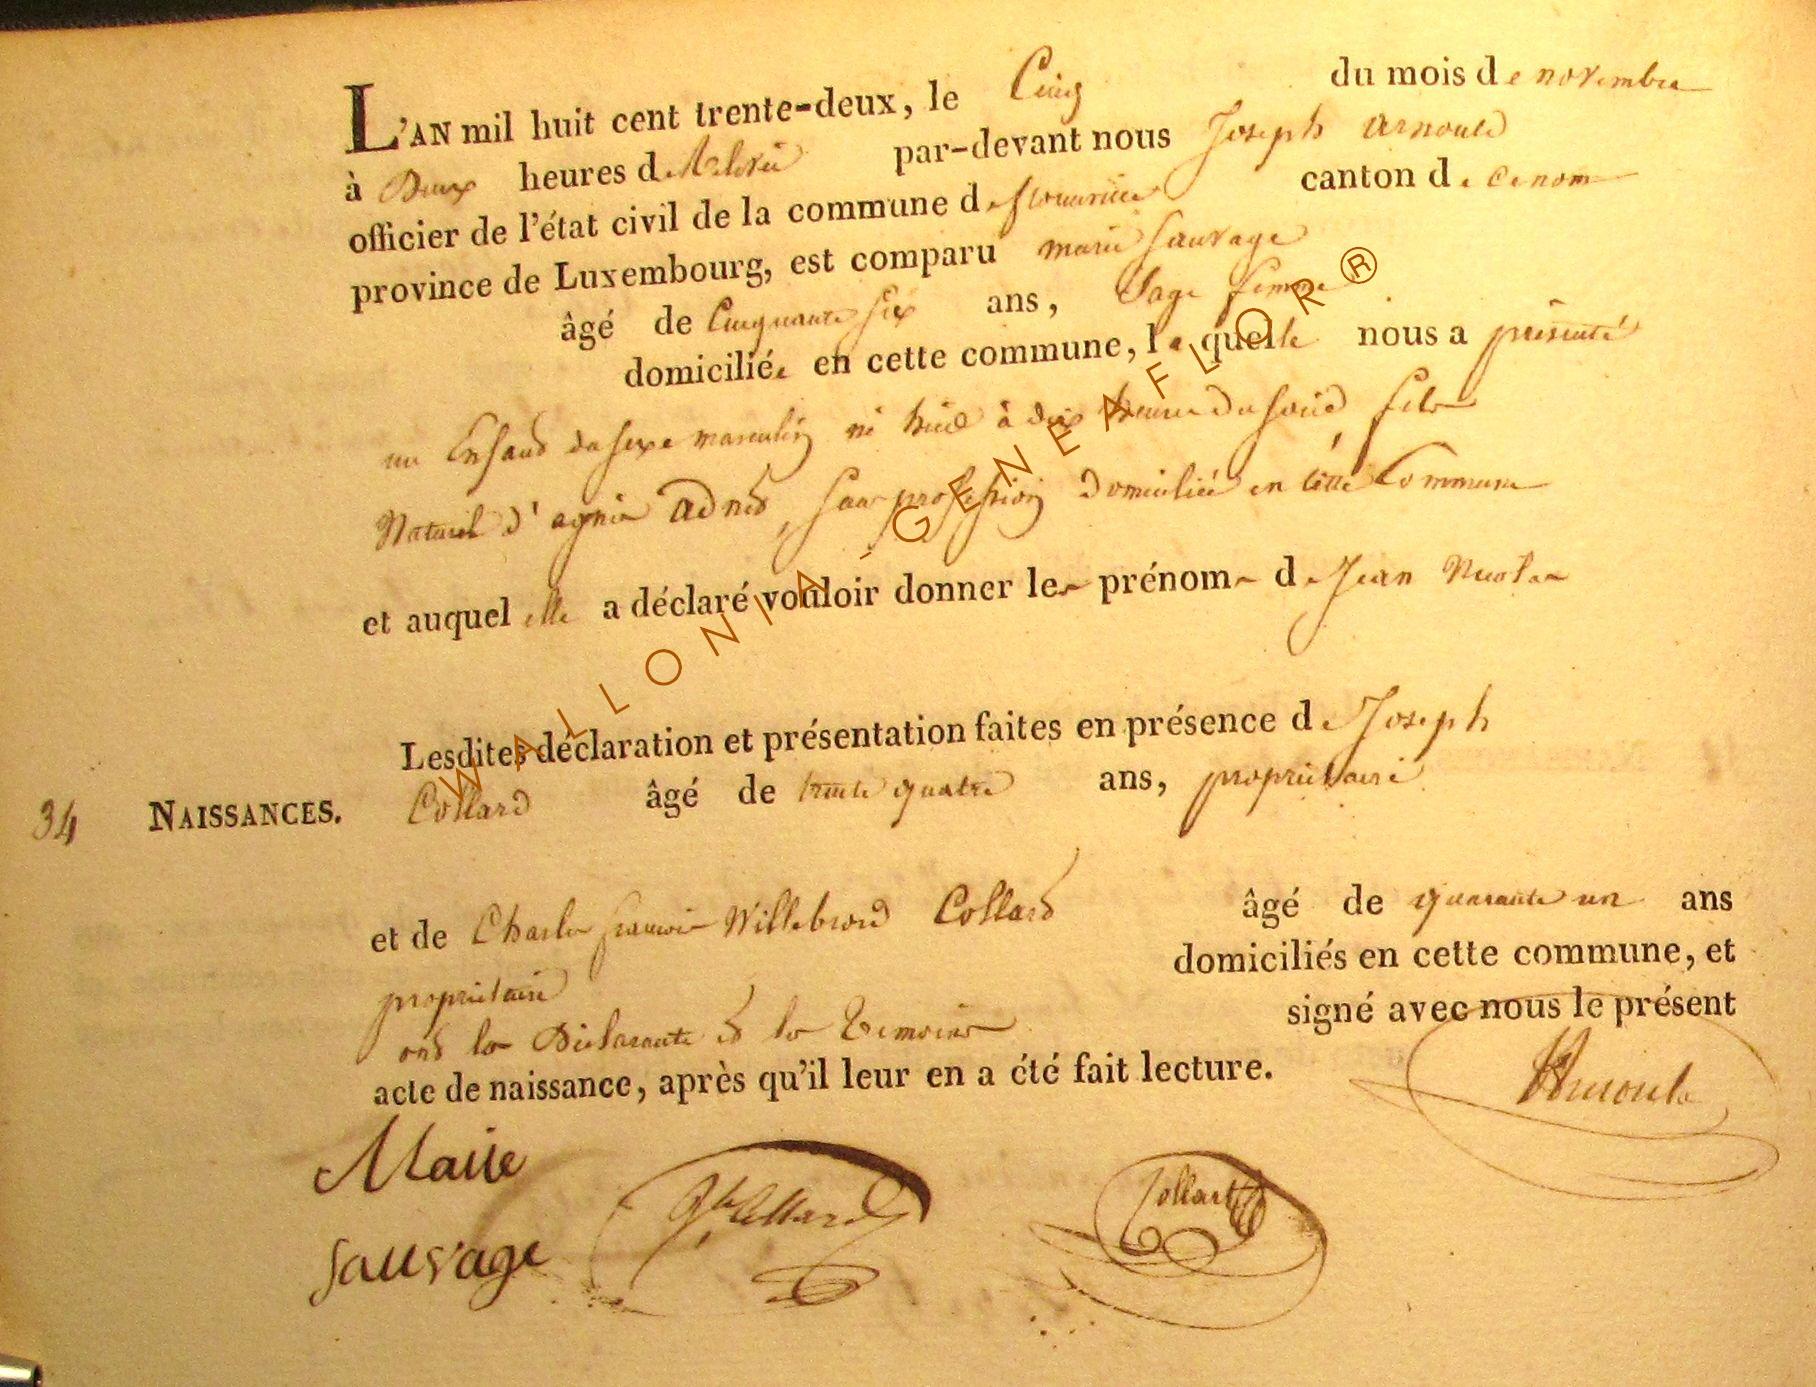 L'AN mil huit cent trente-deux, le Cinq du mois de novembre
à Deux heures de Relevée par-devant nous Joseph arnould
officier de l'état civil de la commune de canton de
province de Luxembourg, est comparu marie Sauvage
âgé de Cinquante Six ans, Sage femme
domiciliée en cette commune, laquelle nous a présenté
un Enfand du sexe masculin né hier à dix heure du soire, fils
Naturel d'agnés adnet, San profession domiciliée en cette Commune
et auquel elle a déclaré vouloir donner les prénoms de Jean Nicolas
Lesdites déclaration et présentation faites en présence de Joseph
34 NAISSANCES. Collard âgé de trente quatre ans, propriétaire
et de Charles francois Willebrord Collard âgé de quarante un ans
propriétaire domiciliés en cette commune, et
ont la Déclarante et les Témoins signé avec nous le présent
acte de naissance, après qu'il leur en a été fait lecture.
Marie
Sauvage
Collard
Collart
Arnould
WALLONIA - GENEAFLOR ®